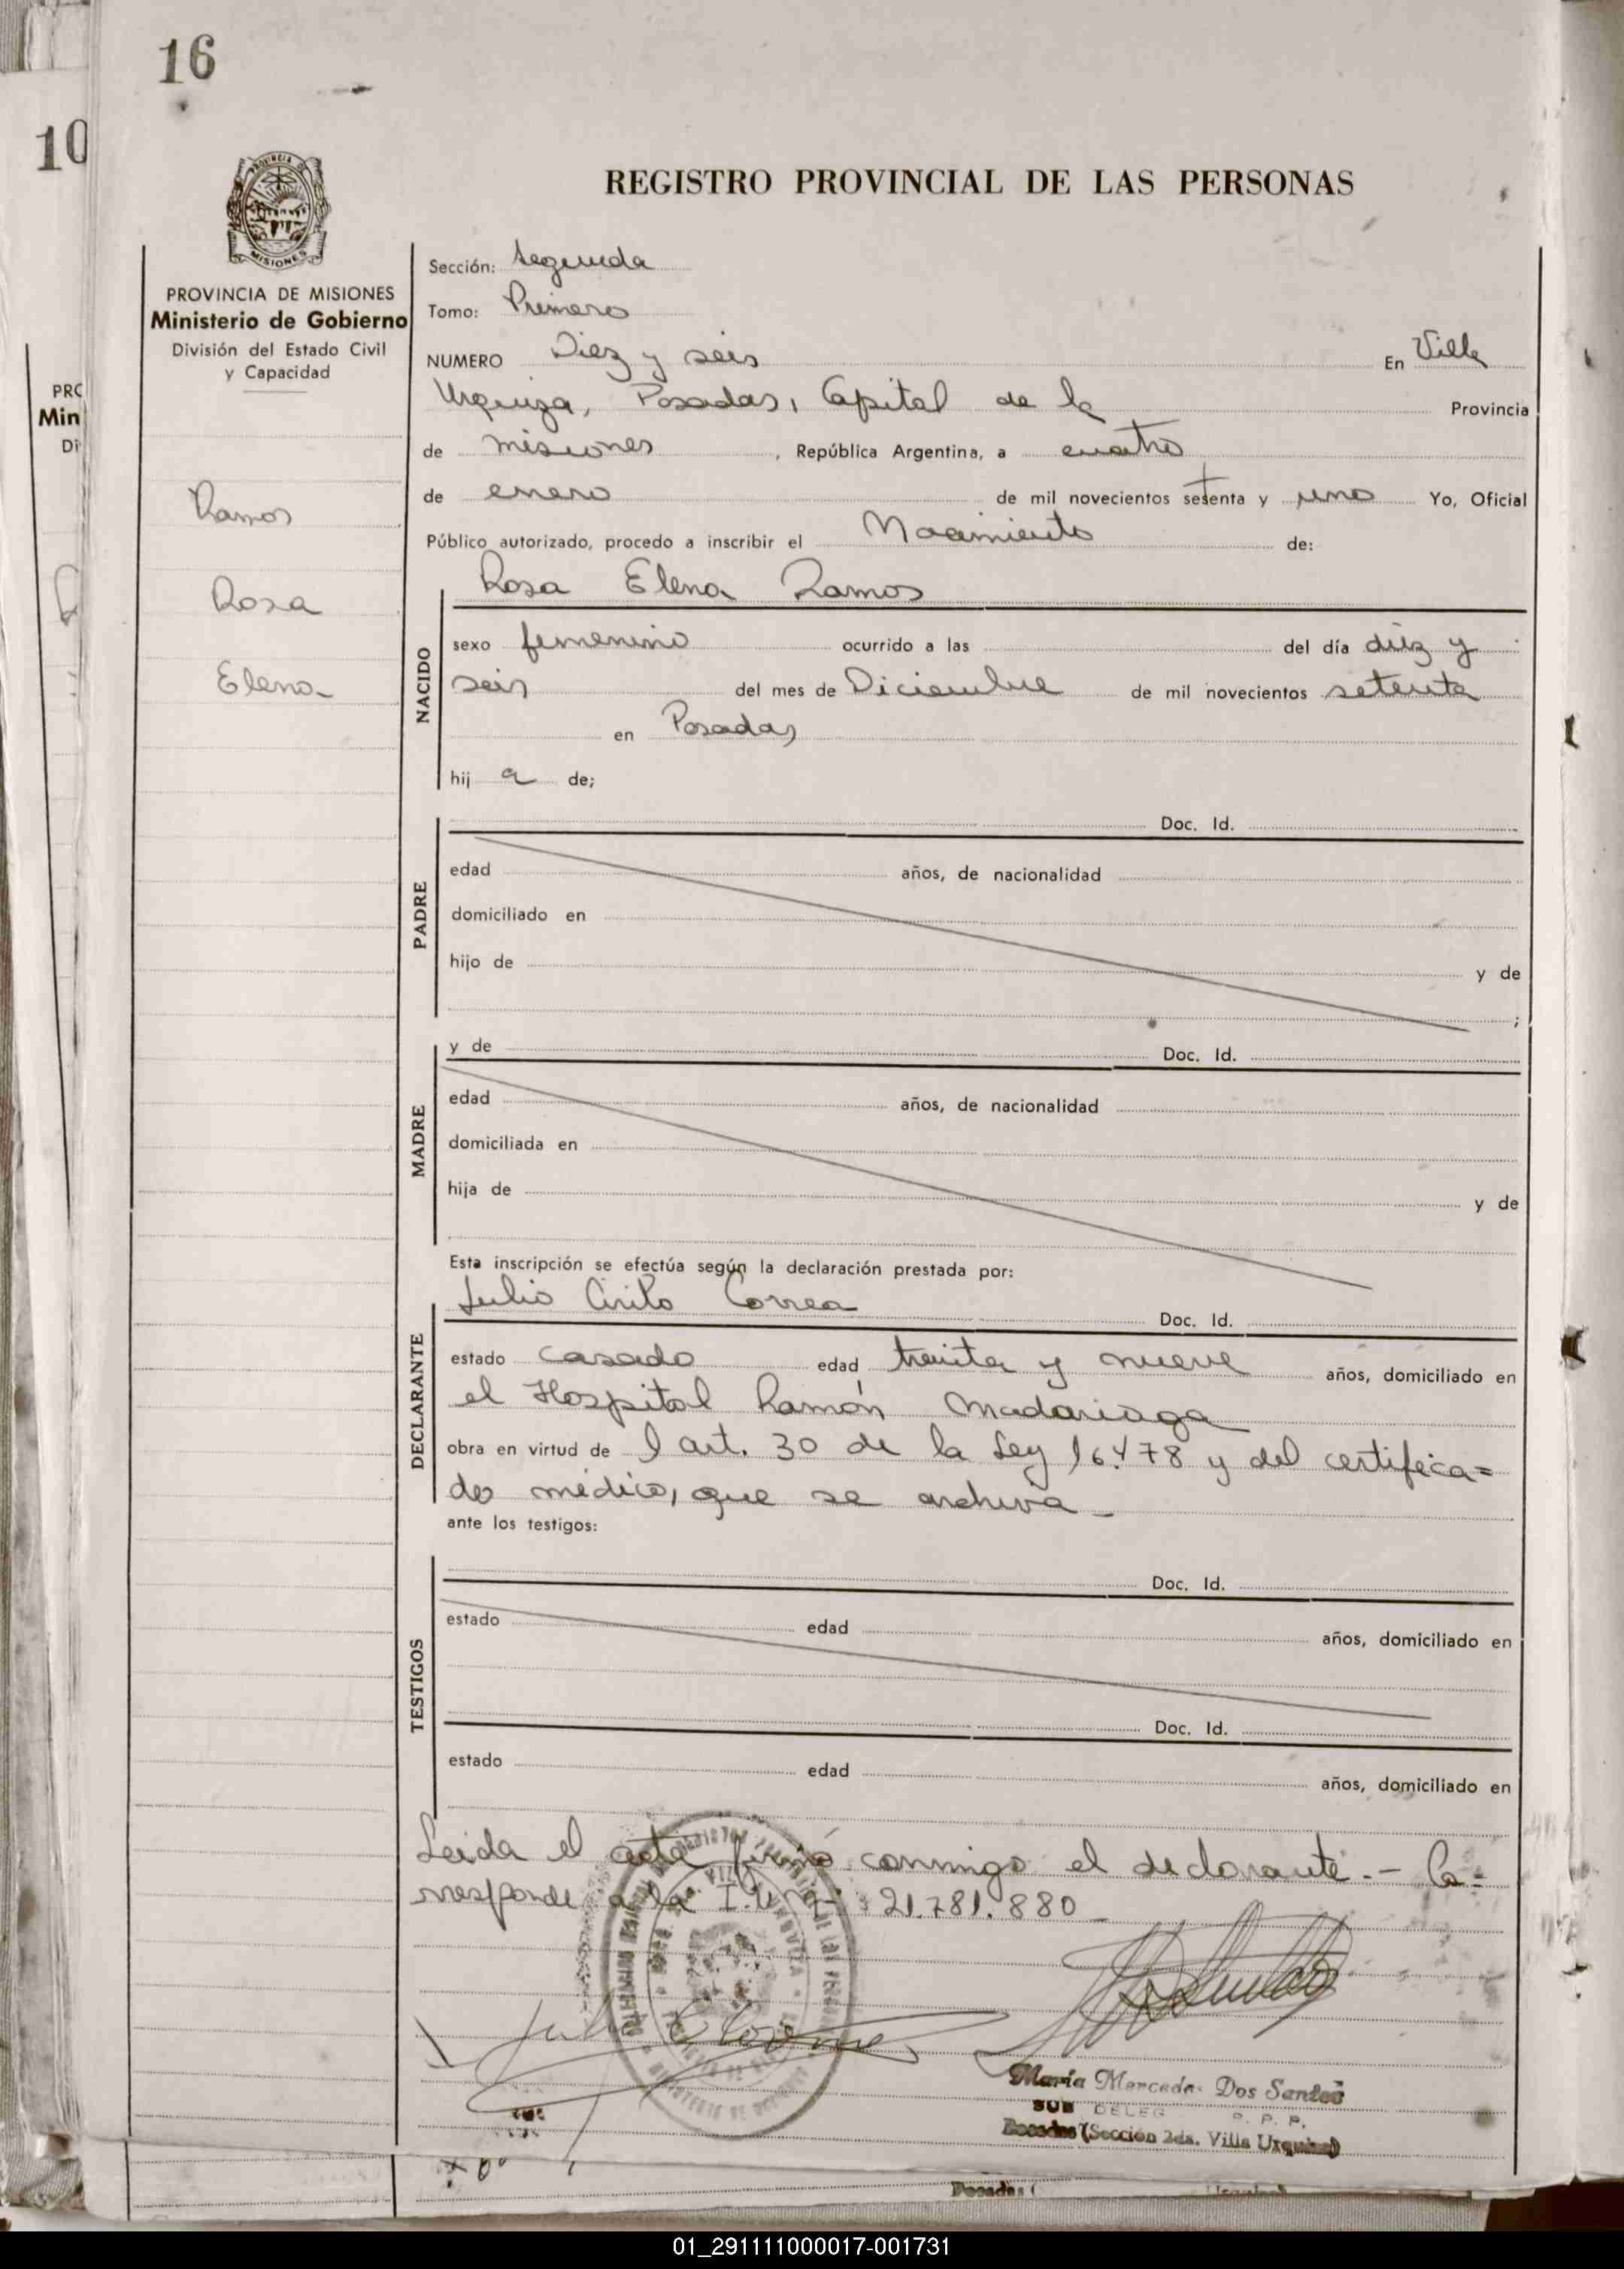 16
10
REGISTRO PROVINCIAL DE LAS PERSONAS
PROVINCIA DE MISIONES
Ministerio de Gobierno
División del Estado Civil
y Capacidad
Ramos
Rosa
Elena
Sección: Segunda
Tomo: Primero
NUMERO Diez y seis En Villa
Urquiza, Posadas, Capital de la Provincia
de misiones, República Argentina, a cuatro
de enero de mil novecientos setenta y uno Yo, Oficial
Público autorizado, procedo a inscribir el Nacimiento de:
Rosa Elena Ramos
NACIDO
sexo femenino ocurrido a las del día diez y
seis del mes de Diciembre de mil novecientos setenta
en Posadas
hij a de;
PADRE
Doc. Id.
edad años, de nacionalidad
domiciliado en
hijo de y de
;
MADRE
y de Doc. Id.
edad años, de nacionalidad
domiciliada en
hija de y de
Esta inscripción se efectúa según la declaración prestada por:
DECLARANTE
Julio Cirilo Correa Doc. Id.
estado casado edad treinta y nueve años, domiciliado en
el Hospital Ramón Madariaga
obra en virtud de l art. 30 de la Ley 16.478 y del certifica=
do médico, que se archiva_
ante los testigos:
TESTIGOS
Doc. Id.
estado edad años, domiciliado en
Doc. Id.
estado edad años, domiciliado en
Leida el acta firmó conmigo el declarante.- Co=
rresponde a la 21.781.880_
María Mercedes Dos Santos
SUB DELEG P. P. P.
Posadas (Sección 2da. Villa Urquiza)
Posadas (
PRO
Min
Di
01_291111000017-001731